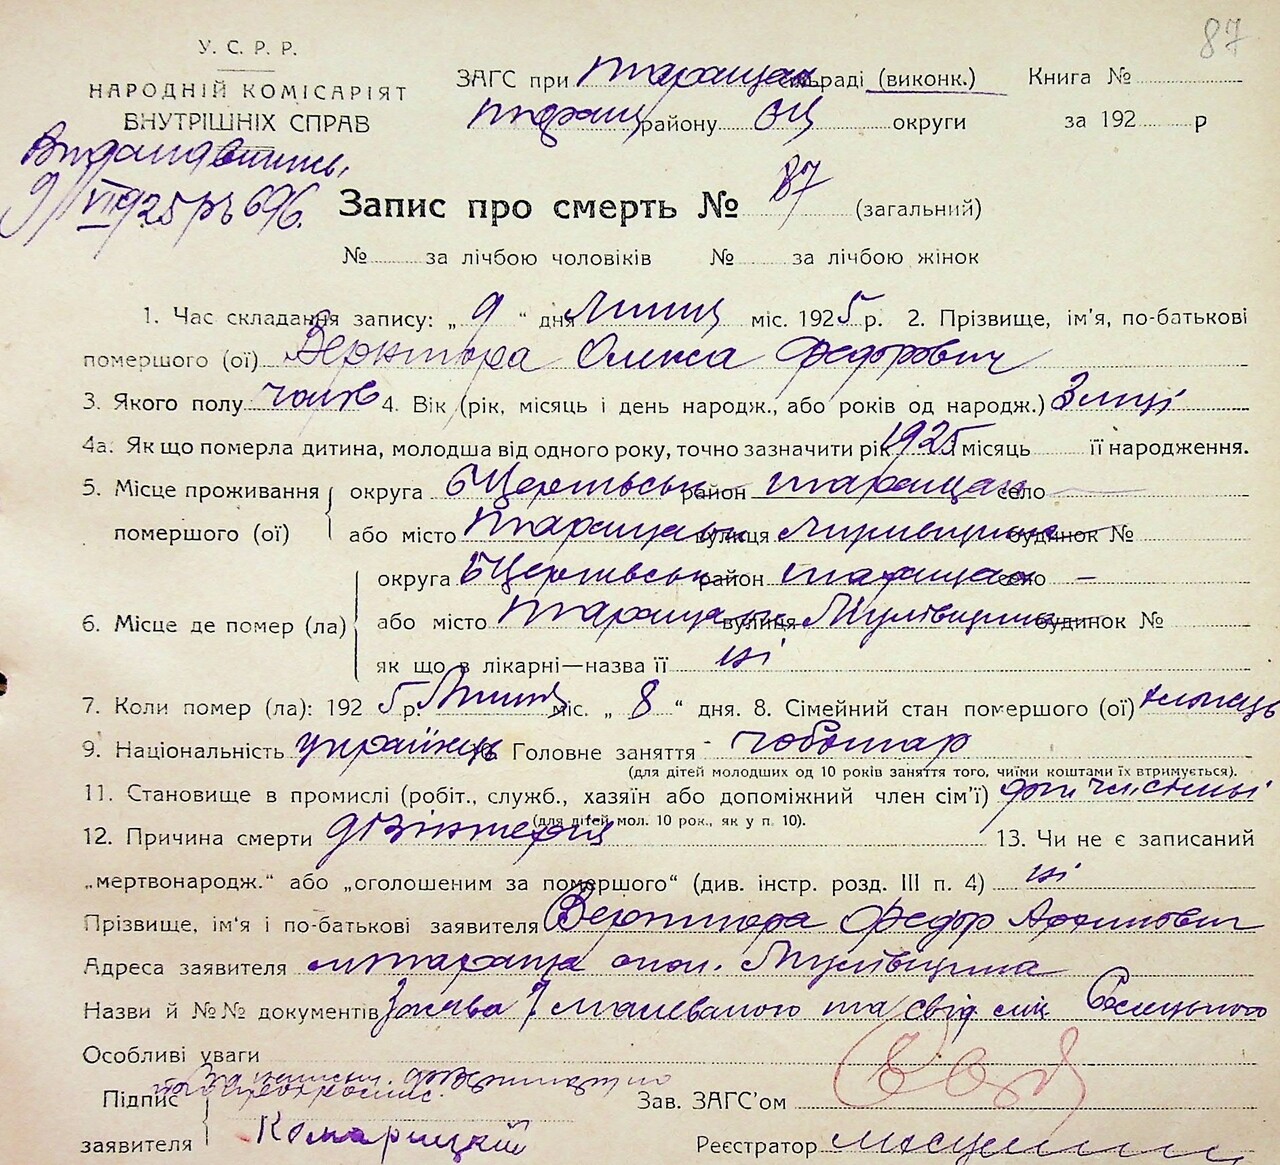 87
У. С. Р. Р.
НАРОДНІЙ КОМІСАРІЯТ
ВНУТРІШНІХ СПРАВ
ЗАГС при Таращан сільраді (виконк.) Книга №
Таращ району БЦ округи за 192 р
9/VII 925 р № 696.
Запис про смерть № 87 (загальний)
№ за лічбою чоловіків № за лічбою жінок
1. Час складання запису: „ 9 “ дня Липц міс. 1925 р. 2. Прізвище, ім'я, по-батькові
помершого (ої) Олекса Федорович
3. Якого полу чолов 4. Вік (рік, місяць і день народж., або років од народж.) 3 міці
4а. Як що померла дитина, молодша від одного року, точно зазначити рік 1925 місяць її народження.
5. Місце проживання округа БЦерківськ район Таращан село —
помершого (ої) або місто Таращан вулиця будинок №
округа БЦерківськ район Таращан село —
6. Місце де помер (ла) або місто Таращан вулиця будинок №
як що в лікарні—назва її ні
7. Коли помер (ла): 1925 р. Липц міс. „ 8 “ дня. 8. Сімейний стан помершого (ої) хлопець
9. Національність українець 10. Головне заняття чоботар
(для дітей молодших од 10 років заняття того, чиїми коштами їх втримується).
11. Становище в промислі (робіт., служб., хазяїн або допоміжний член сім'ї)
(для дітей мол. 10 рок., як у п. 10).
12. Причина смерти дізінтерія 13. Чи не є записаний
„мертвонародж.“ або „оголошеним за помершого“ (див. інстр. розд. III п. 4) ні
Прізвище, ім'я і по-батькові заявителя Федор
Адреса заявителя м Тараща
Назви й №№ документів Заява та свід лік
Особливі уваги
Підпис
заявителя Комарицкій
Зав. ЗАГС'ом
Реєстратор